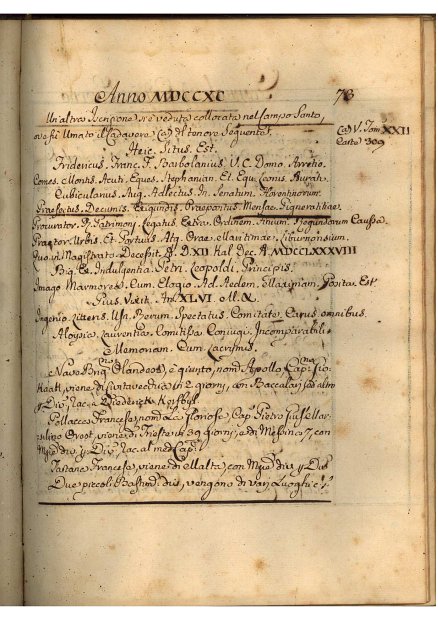 Anno MDCCXC
73
Un'altra Iscrizione si è veduta collocata nel Campo Santo,
ove fù Umato il Cadavere (a) del tenore Seguente.
(a) V. Tom. XXII
Carte 309
Heic. Situs. Est.
Fridericus. Franc. F. Barbolanius. V. C. Domo. Arretio.
Comes. Montis. Acuti. Eques. Stephanian. Et. Equ. Leonis. Burat.
Cubicularius. Aug. Adlectus. In. Senatum. Florentinorum.
Praefectus. Decumis. Exigundis. Praepositus. Mensae. Pigneratitiae.
Procurator. P. Patrimonj. Legatus. Extra. Ordinem. Finium. Regundorum Caussa.
Praetor. Urbis. Et. Portuus. Atq. Orae. Maritimae. Liburnensium.
Quo. in. Magistratu. Decessit. P. D. XII Kal Dec. A. MDCCLXXXVIII
Indulgentia. Petri. Leopoldi. Principis.
Imago Marmorea. Cum. Elogio Ad. Aedem. Maximam. Posita. Est
Pius. Vixit. An. XLVI. M. X.
Ingenio. Litteris. Usu. Rerum. Spectatus. Comitate. Carus. omnibus.
Aloysia. Laurentia. Comitissa Coniugi. Incomparabili
Memoriam. Cum Lacrimis.
Nave Olandese, è giunto, nom. Apollo, Cap.
viene di in 2 giorni, con Baccalari ed altro
Diederick
Pollacca Francese, nom. La Gloriose, Cap. Pietro
viene di Trieste in 39 giorni, e di Messina 7, con
al med. Cap.
Tartana Francese, viene di Malta, con
Due piccoli Bastim. viengono di varj Luoghi